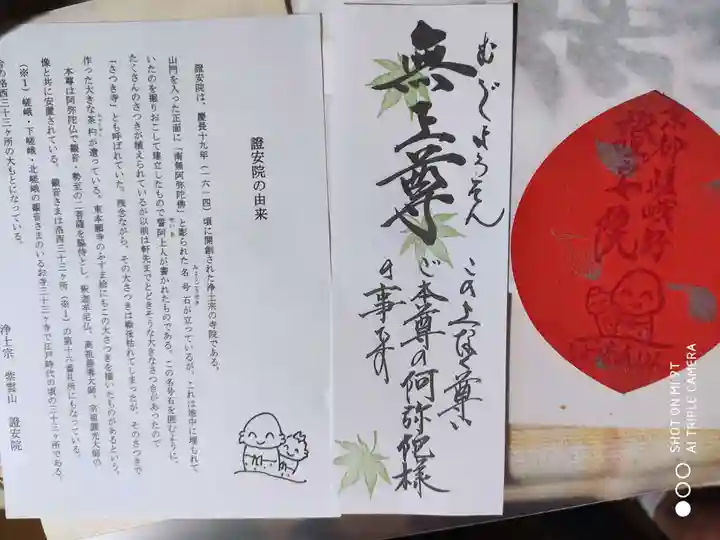 むじょうそん
無上尊
この上なく尊い
ご本尊の阿弥陀様
の事です
證安院の由来
證安院は、慶長十九年(一六一四)頃に開創された浄土宗の寺院である。
山門を入った正面に「南無阿弥陀佛」と彫られた名号石が立っているが、これは地中に埋もれて
いたのを掘りおこして建立したもので誓阿上人が書かれたものである。この名号石を囲むように、
たくさんのさつきが植えられているが以前は軒先までとどきそうな大きなさつきがあったので
「さつき寺」とも呼ばれていた。残念ながら、その大さつきは戦後枯れてしまったが、そのさつきで
作った大きな茶杓が遺っている。東本願寺のふすま絵にもこの大さつきを描いたものがあるという。
本尊は阿弥陀仏で観音・勢至の二菩薩を脇侍とし、釈迦牟尼仏、高祖善導大師、宗祖圓光大師の
像と共に安置されている。観音さまは洛西三十三ヶ所(※1)の第十六番札所にもなっている。
(※1)嵯峨・下嵯峨・北嵯峨の観音さまのいるお寺三十三ヶ寺で江戸時代の頃の三十三ヶ所である。
今の洛西三十三ヶ所の大もとになっている。
浄土宗 紫雲山 證安院
SHOT ON MI 9T
AI TRIPLE CAMERA